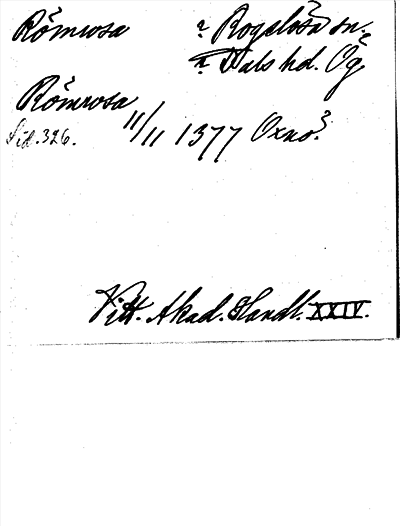 Römrosa ? Rogslösa sn.
? Dals hd. Ög.
Römrosa
Sid. 326. 11/11 1377 Oxnö?
Vitt. Akad. Handl. XXIV.